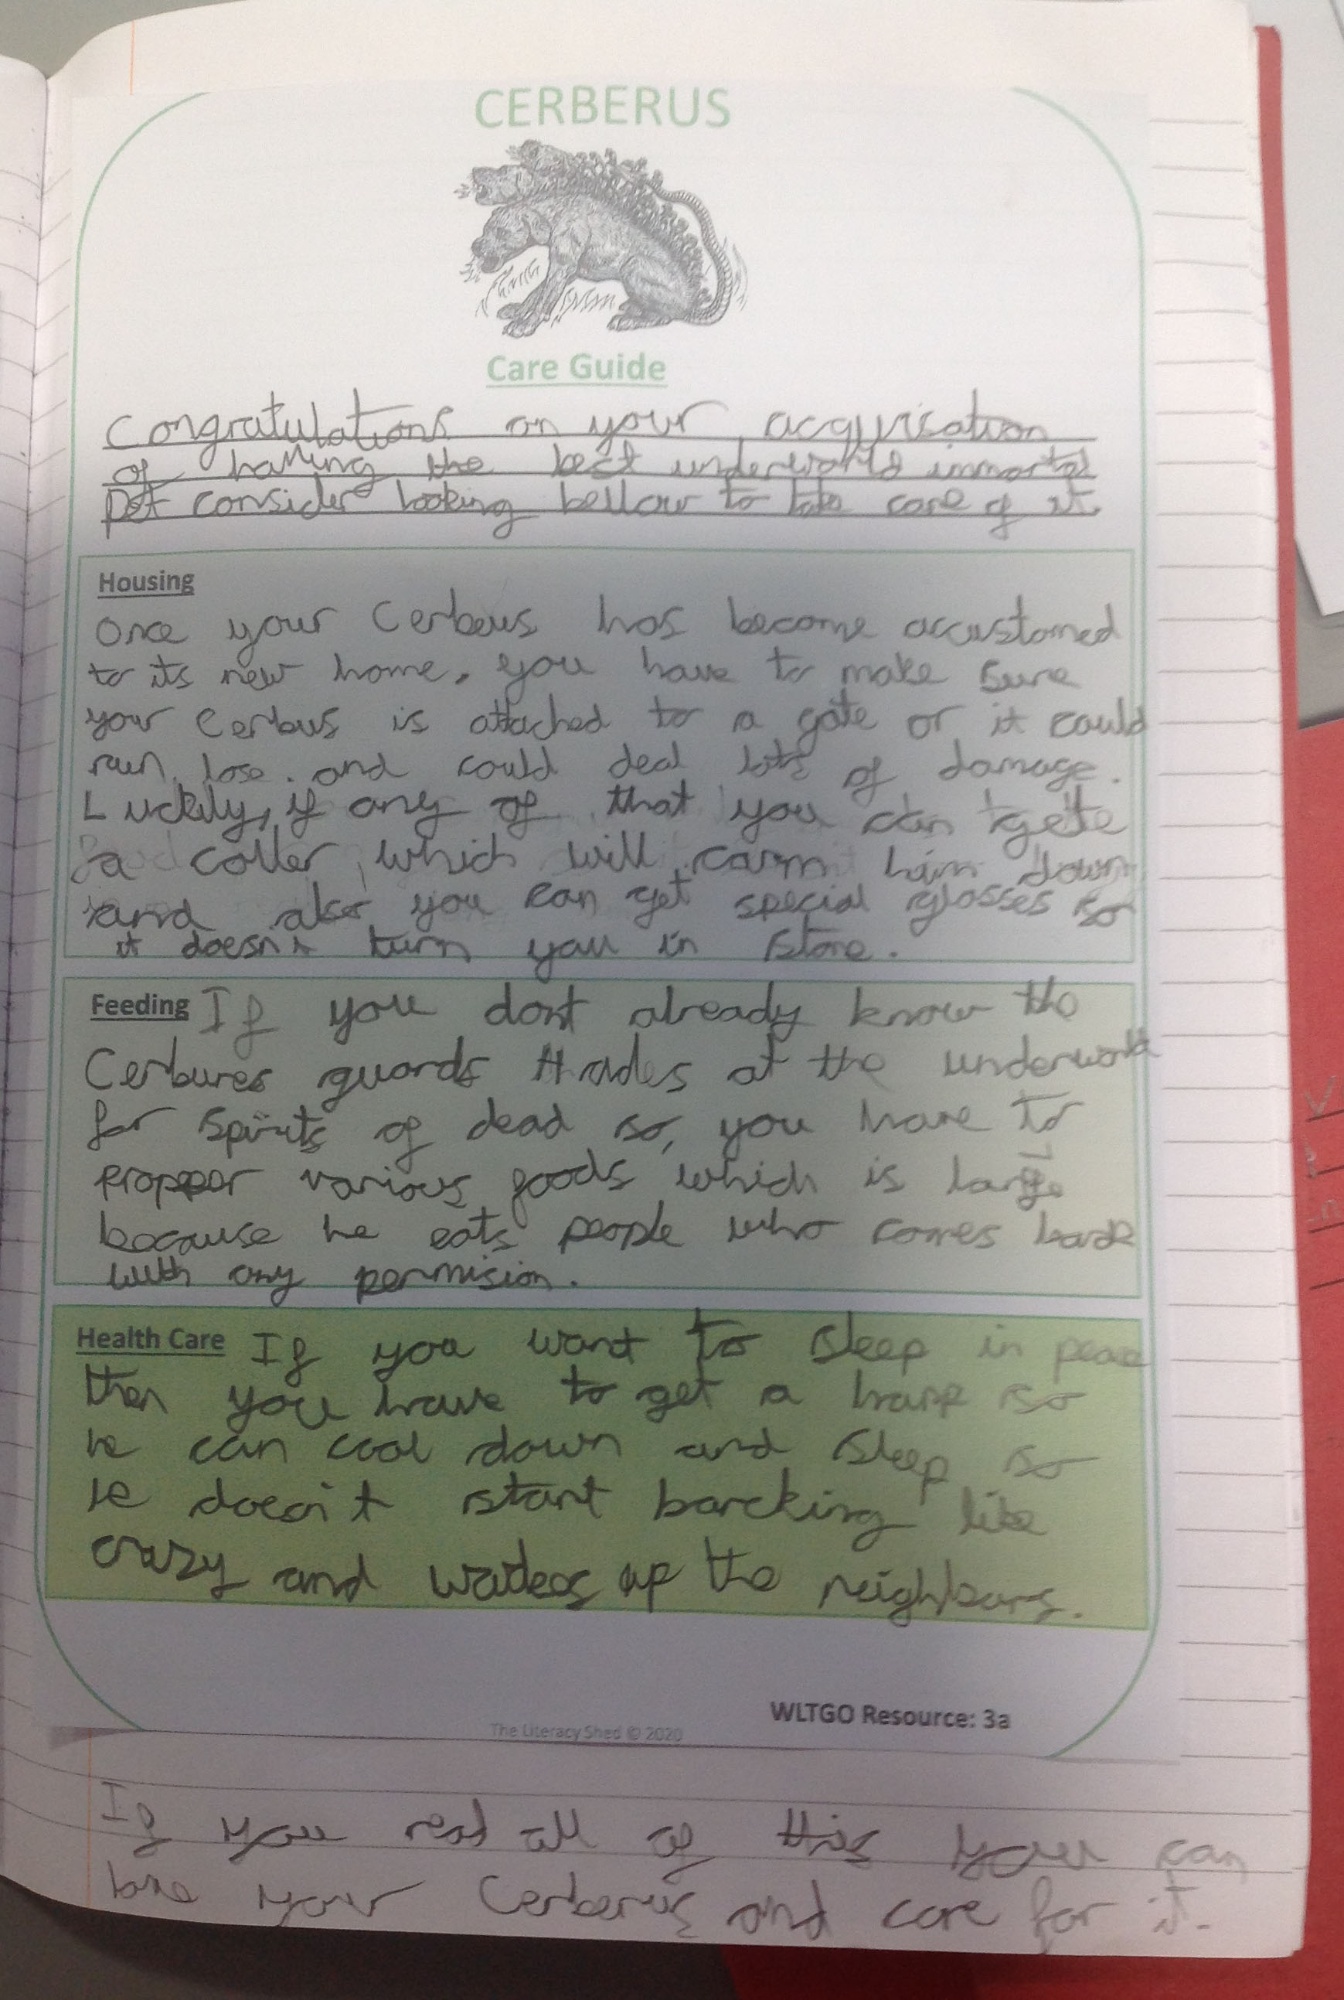 CERBERUS
Care Guide
Congratulations on your acquisation
of haVing the best underworld immortal
pet consider looking bellow to take care of it.
Housing
Once your Cerbeus has become accustomed
to its new home, you have to make sure
your Cerbus is attached to a gate or it could
run lose. and could deal lots of damage.
Luckily, if any of that you can gete
a coller which will carm him down
and also you can get special glasses so
it doesn't turn you in stone.
Feeding If you dont already know the
Cerbures guards Hades at the underworld
for spirits of dead so, you have to
propper various foods which is large
because he eats people who comes back
with any permision.
Health Care If you want to sleep in peace
then you have to get a harp so
he can cool down and sleep so
he doesn't start barcking like
crazy and wakes up the neighbours.
WLTGO Resource: 3a
The Literacy Shed © 2020
If you read all of this you can
your Cerberus and care for it.